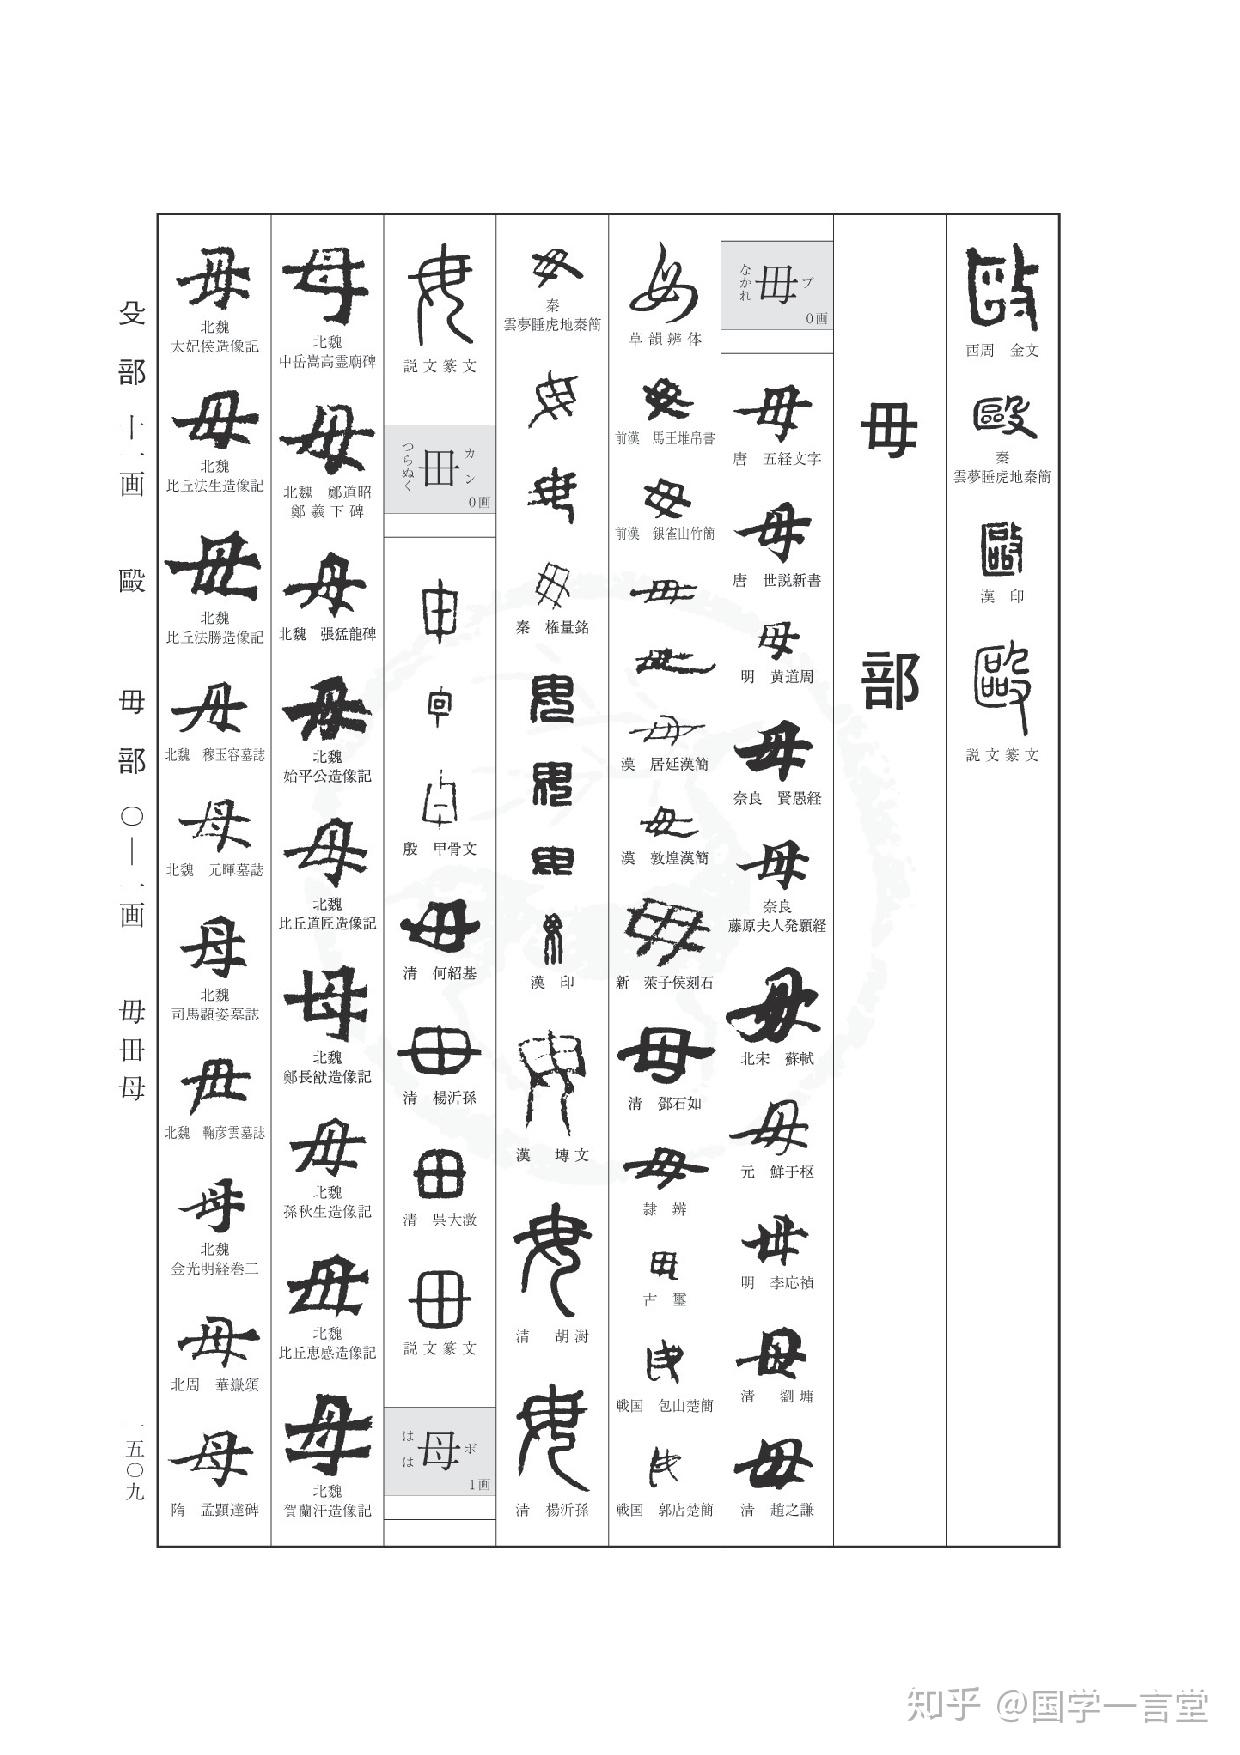 西周 金文
秦
雲夢睡虎地秦簡
漢 印
説文篆文
毋部
毋
ブ
なかれ
0画
唐 五経文字
唐 世説新書
明 黄道周
奈良 賢愚経
奈良
藤原夫人発願経
北宋 蘇軾
元 鮮于枢
明 李応禎
清 劉墉
清 趙之謙
草韻辨体
前漢 馬王堆帛書
前漢 銀雀山竹簡
漢 居延漢簡
漢 敦煌漢簡
新 萊子侯刻石
清 鄧石如
隷辨
古璽
戦国 包山楚簡
戦国 郭店楚簡
秦
雲夢睡虎地秦簡
秦 権量銘
漢 印
漢 塼文
清 胡澍
清 楊沂孫
説文篆文
毌
カン
つらぬく
0画
殷 甲骨文
清 何紹基
清 楊沂孫
清 呉大澂
説文篆文
母
ボ
はは
1画
北魏
中岳嵩高霊廟碑
北魏 鄭道昭
鄭羲下碑
北魏 張猛龍碑
北魏
始平公造像記
北魏
比丘道匠造像記
北魏
鄭長猷造像記
北魏
孫秋生造像記
北魏
比丘恵感造像記
北魏
賀蘭汗造像記
北魏
太妃侯造像記
北魏
比丘法生造像記
北魏
比丘法勝造像記
北魏 穆玉容墓誌
北魏 元暉墓誌
北魏
司馬顕姿墓誌
北魏 鞠彦雲墓誌
北魏
金光明経巻二
北周 華嶽頌
隋 孟顕達碑
殳部 十一画 毆 毋部 〇—一画 毋毌母
一五〇九
知乎 @国学一言堂